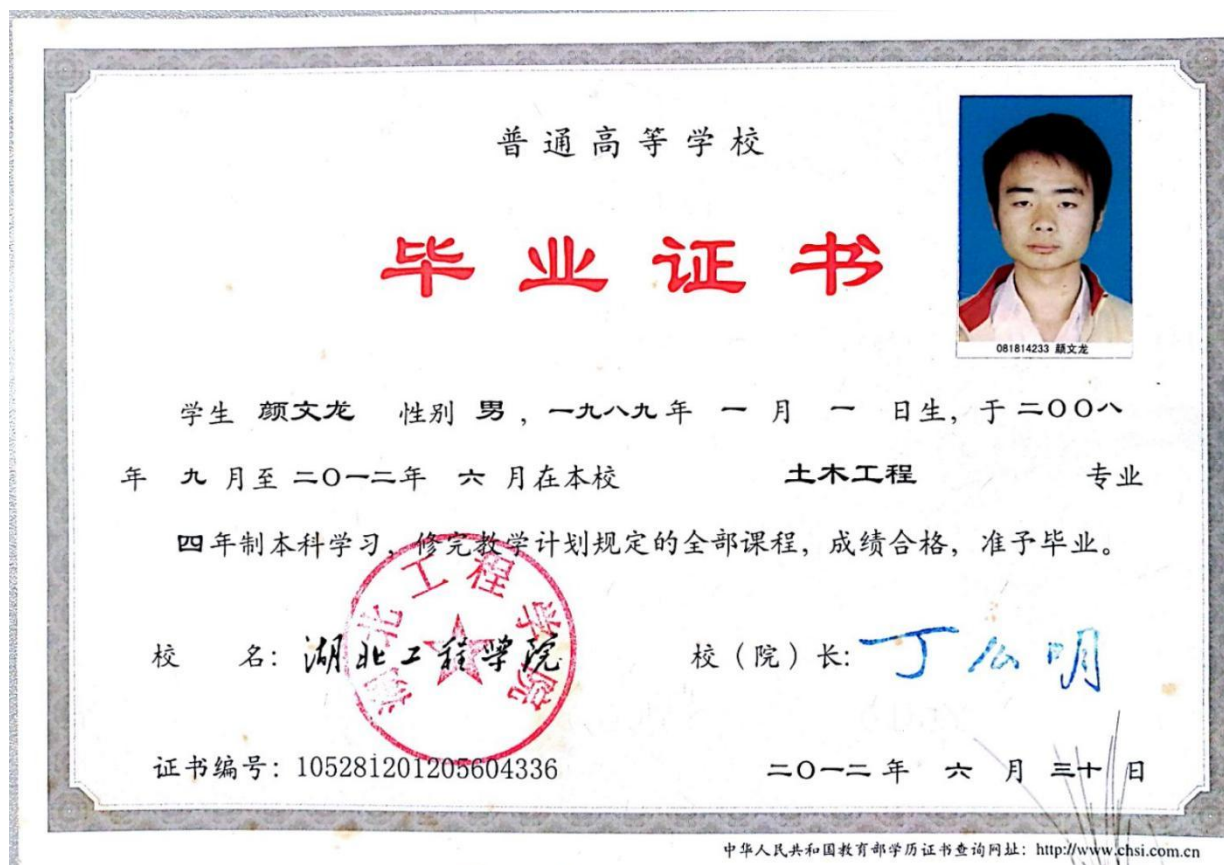 普通高等学校
毕业证书
081814233 颜文龙
学生 颜文龙 性别 男，一九八九年 一 月 一 日生，于二〇〇八
年 九 月至二〇一二年 六 月在本校 土木工程 专业
四年制本科学习，修完教学计划规定的全部课程，成绩合格，准予毕业。
湖北工程学院
校 名：湖北工程学院 校（院）长：丁公明
证书编号：105281201205604336 二〇一二年 六 月 三十 日
中华人民共和国教育部学历证书查询网址：http://www.chsi.com.cn